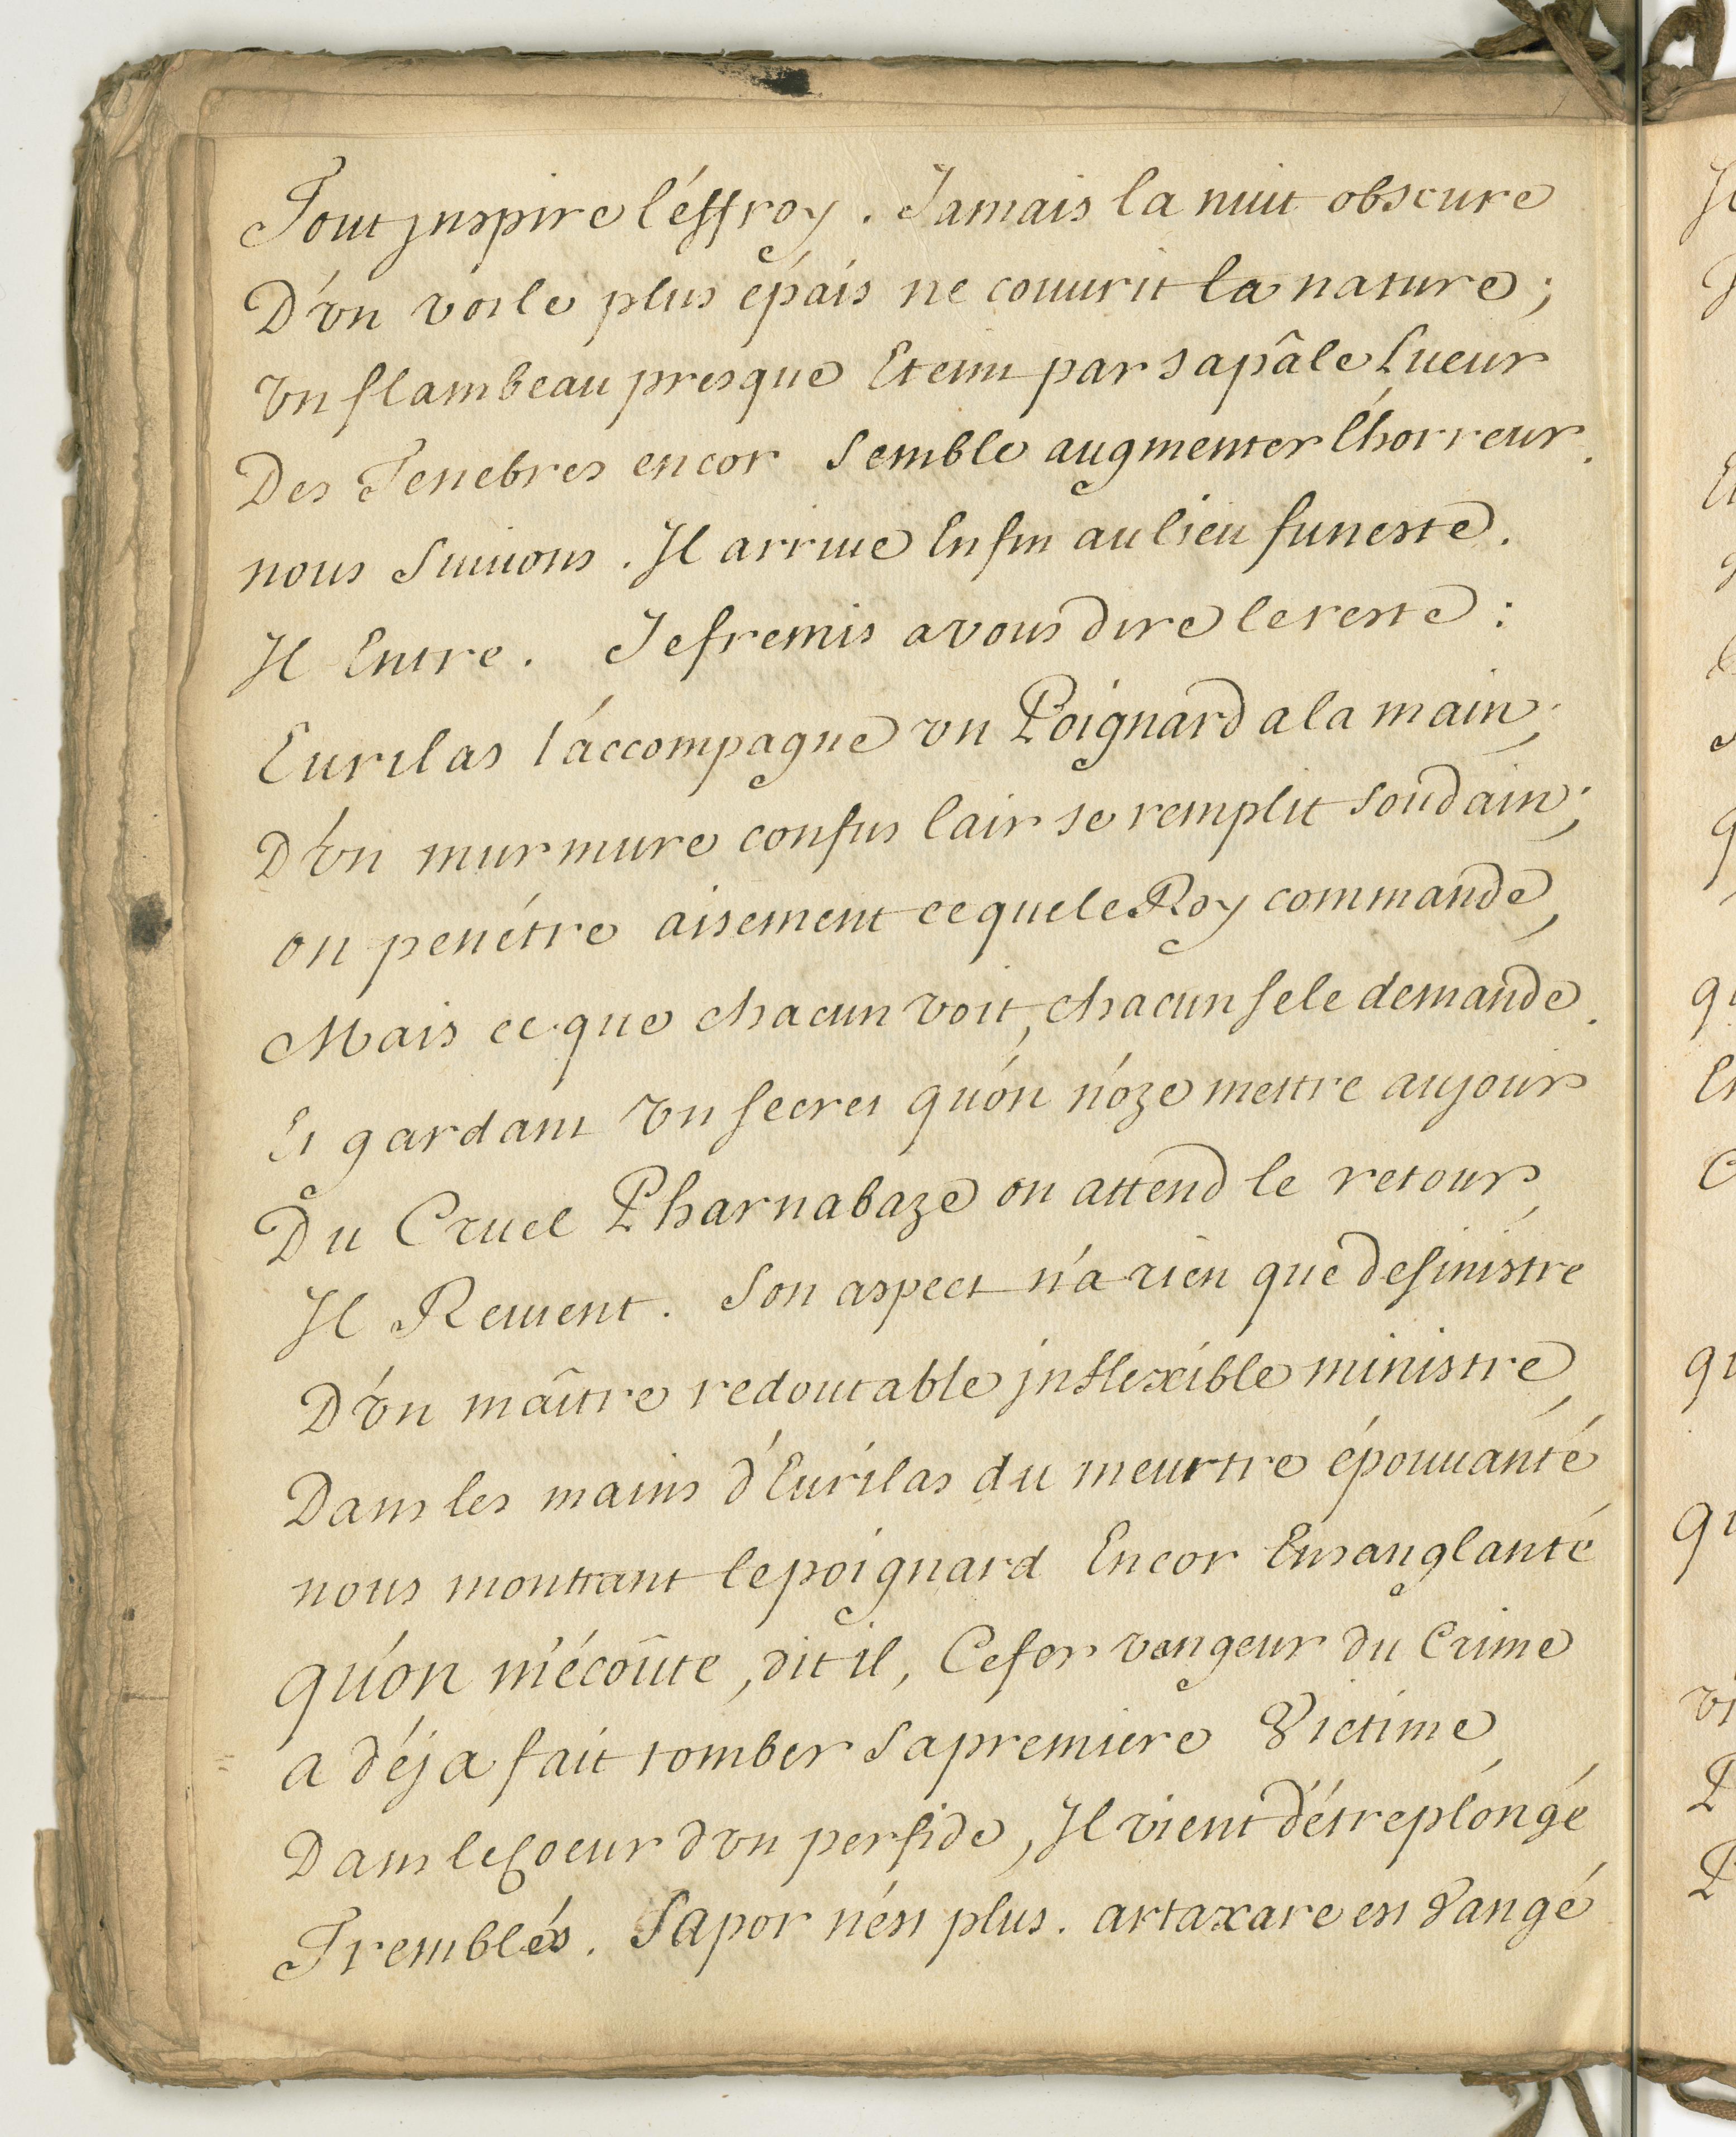 Tout jnspire l'éffroy. Jamais la nuit obscure
D'vn voile plus épais ne couurit la nature;
vn flambeau presque Eteint par sa pâle Lueur
Des Tenebres encor semble augmenter l'horreur.
nous Suiuons. Il arriue Enfin au lieu funeste.
Il Entre. Je fremis a vous dire le reste:
Eurilas l'accompagne vn Poignard a la main;
D'vn murmure confus lair se remplit soudain;
on penétre aisement ce que le Roy commande,
Mais ce que chacun voit, chacun se le demande.
Et gardant vn secret qu'on n'oze mettre au jour
Du Cruel Pharnabaze on attend le retour,
Il Reuient. Son aspect n'a rien que de sinistre
D'vn maître redoutable jnflexible ministre,
Dans les mains d'Eurilas du meurtre épouuanté
nous montrant le poignard Encor Ensanglanté
qu'on m'écoûte, dit il, Ce fer vangeur du Crime
a déja fait tomber sa premiere Victime,
Dans le Coeur d'vn perfide, Il vient d'étre plongé
Tremblés. Sapor n'est plus. artaxare est Vangé